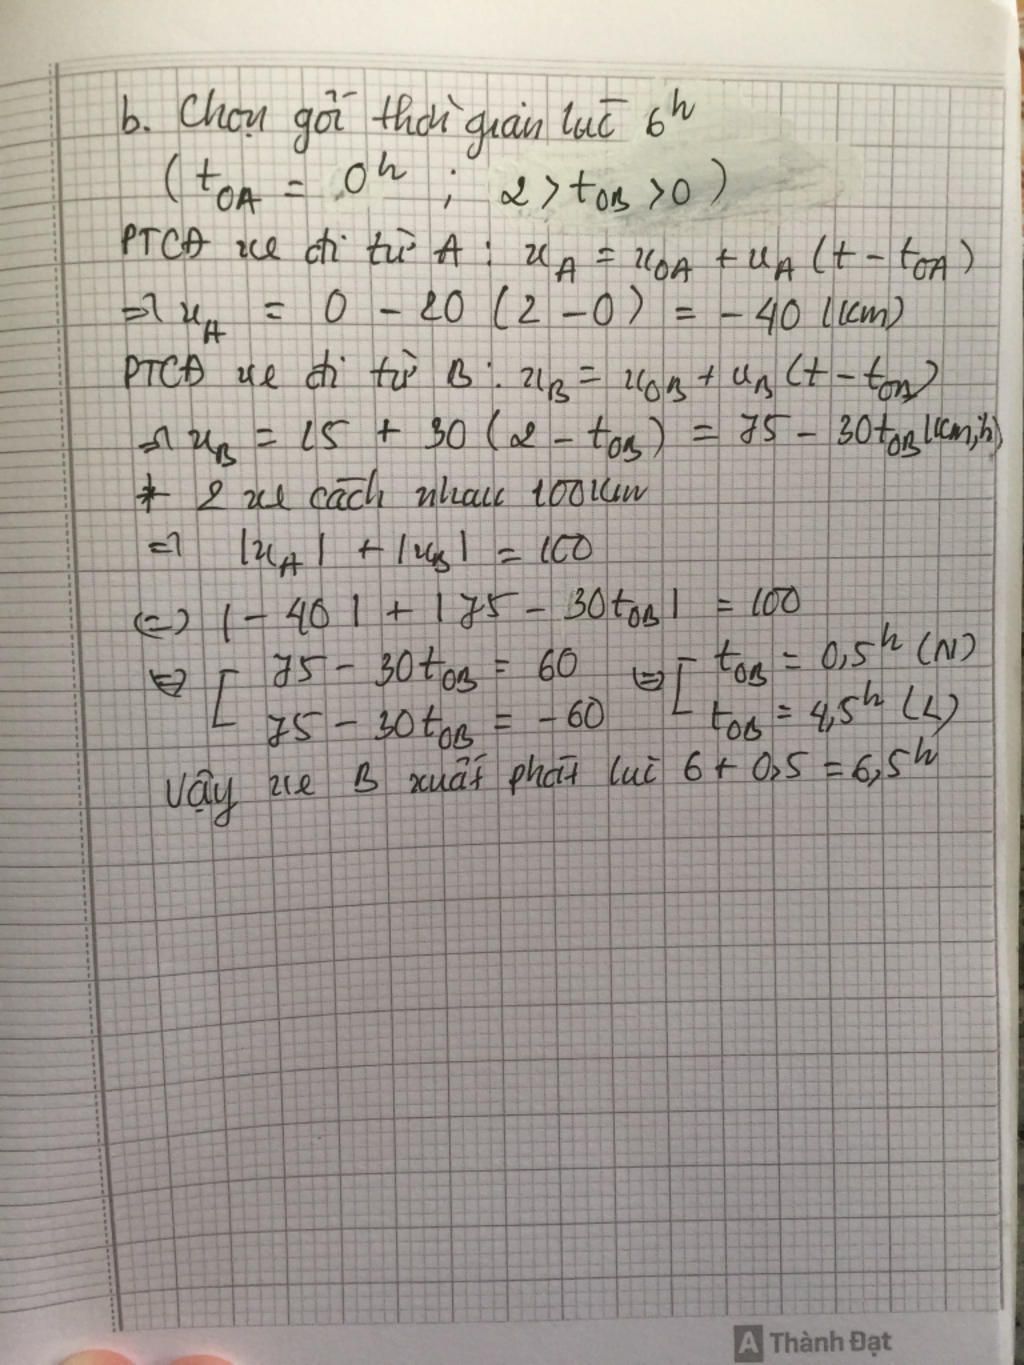 b. Chọn gốc thời gian lúc 6ʰ
( t₀A = 0ʰ ; 2 > t₀B > 0 )
PTCĐ xe đi từ A : xA = x₀A + vA (t - t₀A)
⇒ xA = 0 - 20 (2 - 0) = -40 (km)
PTCĐ xe đi từ B : xB = x₀B + vB (t - t₀B)
⇒ xB = 15 + 30 (2 - t₀B) = 75 - 30t₀B (km,h)
* 2 xe cách nhau 100km
⇒ |xA| + |xB| = 100
(=) |-40| + |75 - 30t₀B| = 100
⇔ [ 75 - 30t₀B = 60 ⇔ [ t₀B = 0,5ʰ (N)
75 - 30t₀B = -60 t₀B = 4,5ʰ (L)
Vậy xe B xuất phát lúc 6 + 0,5 = 6,5ʰ
A Thành Đạt